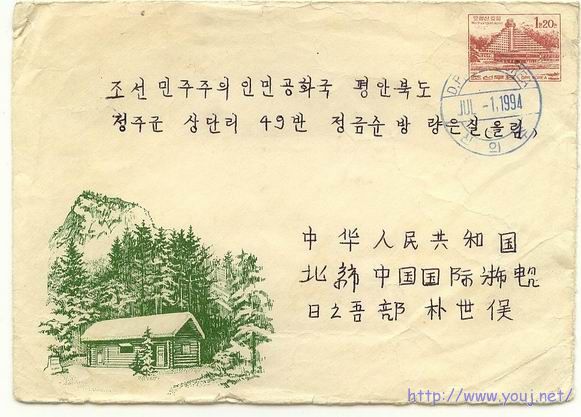 1원20전
조선우표
JUL -1.1994
조선 민주주의 인민공화국 평안북도
정주군 상단리 49반 정금순 방 량은실(올림)
中华人民共和国
北 中国国际
日之吾部 朴世俣
http://www.youj.net/